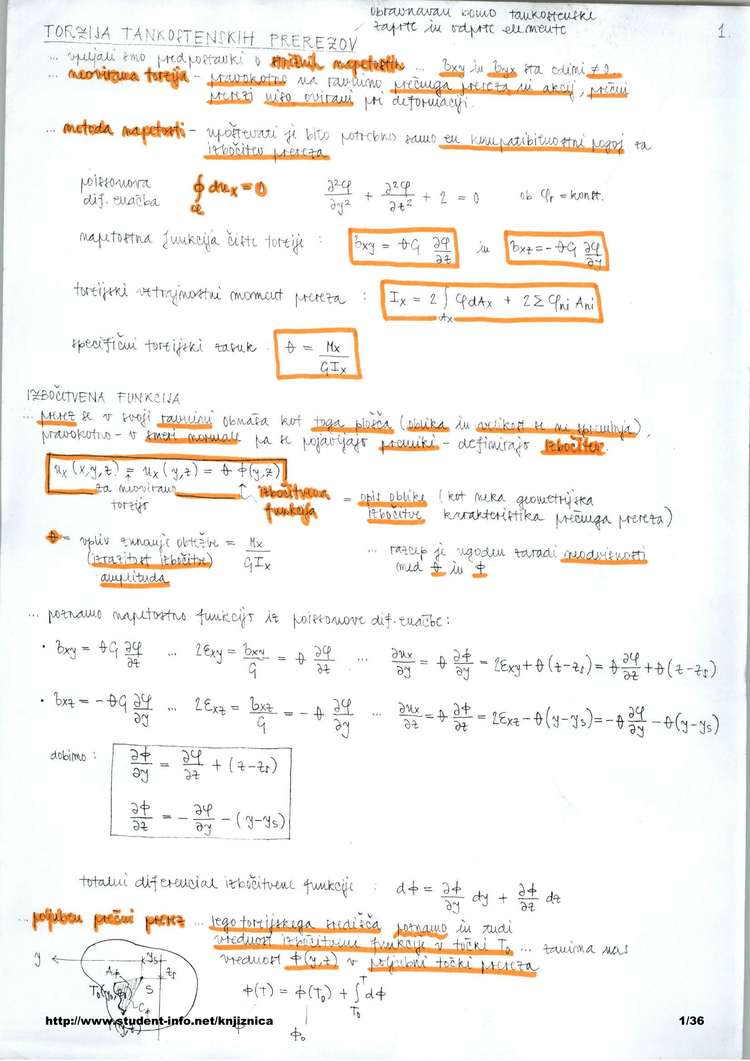 obravnavali bomo tankostenske
zaprte in odprte elemente
1.
TORZIJA TANKOSTENSKIH PREREZOV
... vpeljali smo predpostavki o strižnih napetostih ... σxy in σyx sta edini ≠ 0
... neovirana torzija - pravokotno na ravnino prečnega prereza ni akcij, prečni
prerezi niso ovirani pri deformaciji.
... metoda napetosti - upoštevati je bilo potrebno samo en kompatibilnostni pogoj za
izbočitev prereza
poissonova
dif. enačba
∮ dux = 0
∂²φ/∂y² + ∂²φ/∂z² + 2 = 0 ob φr = konst.
napetostna funkcija čiste torzije : σxy = θG ∂φ/∂z in σxz = -θG ∂φ/∂y
torzijski vztrajnostni moment prereza : Ix = 2 ∫Ax φ dAx + 2Σ φni Ani
specifični torzijski zasuk θ = Mx/GIx
IZBOČITVENA FUNKCIJA
... prerez se v svoji ravnini obnaša kot toga plošča (oblika in velikost se ne spreminja),
pravokotno - v smeri normale pa se pojavljajo premiki - definirajo izbočitev.
ux (x,y,z) = ux (y,z) = θ ϕ(y,z)
za neovirano
torzijo
izbočitvena
funkcija
= opis oblike (kot neka geometrijska
izbočitve karakteristika prečnega prereza)
θ = vpliv zunanje obtežbe = Mx/GIx
(izrazitost izbočitve)
amplituda
... razcep je ugoden zaradi neodvisnosti
med θ in ϕ
... poznamo napetostno funkcijo iz poissonove dif. enačbe :
• σxy = θG ∂φ/∂z ... 2εxy = σxy/G = θ ∂φ/∂z ... ∂ux/∂y = θ ∂ϕ/∂y = 2εxy + θ(z-zs) = θ ∂φ/∂z + θ(z-zs)
• σxz = -θG ∂φ/∂y ... 2εxz = σxz/G = -θ ∂φ/∂y ... ∂ux/∂z = θ ∂ϕ/∂z = 2εxz - θ(y-ys) = -θ ∂φ/∂y - θ(y-ys)
dobimo :
∂ϕ/∂y = ∂φ/∂z + (z-zs)
∂ϕ/∂z = -∂φ/∂y - (y-ys)
totalni diferencial izbočitvene funkcije : dϕ = ∂ϕ/∂y dy + ∂ϕ/∂z dz
... poljuben prečni prerez ... lego torzijskega središča poznamo in tudi
vrednost izbočitvene funkcije v točki T₀ ... zanima nas
vrednost ϕ(y,z) v poljubni točki prereza
y
ys
zs
S
ϕ(T) = ϕ(T₀) + ∫T₀T dϕ
ϕ₀
http://www.student-info.net/knjiznica
1/36